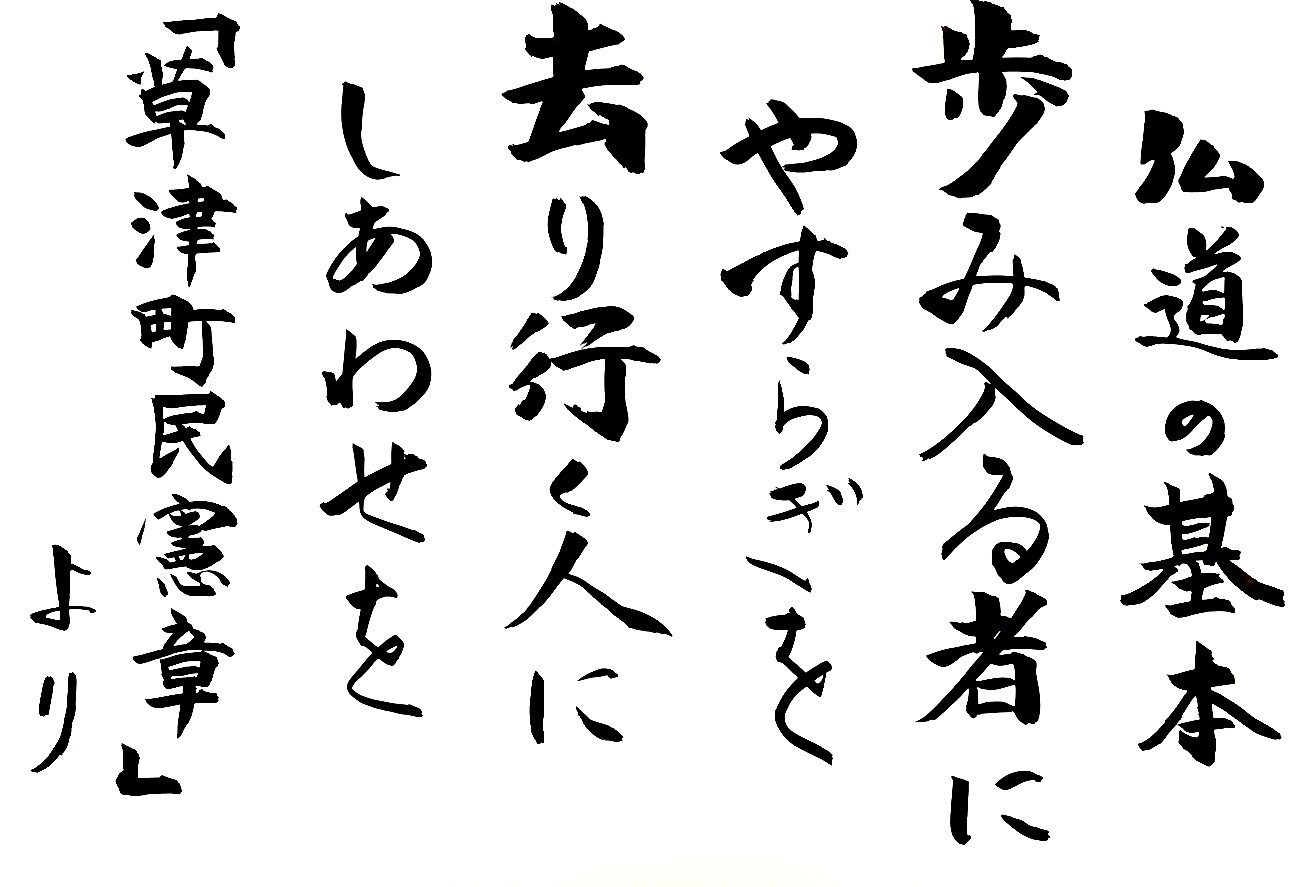 仏道の基本
歩み入る者に
やすらぎを
去り行く人に
しあわせを
「草津町民憲章」
より